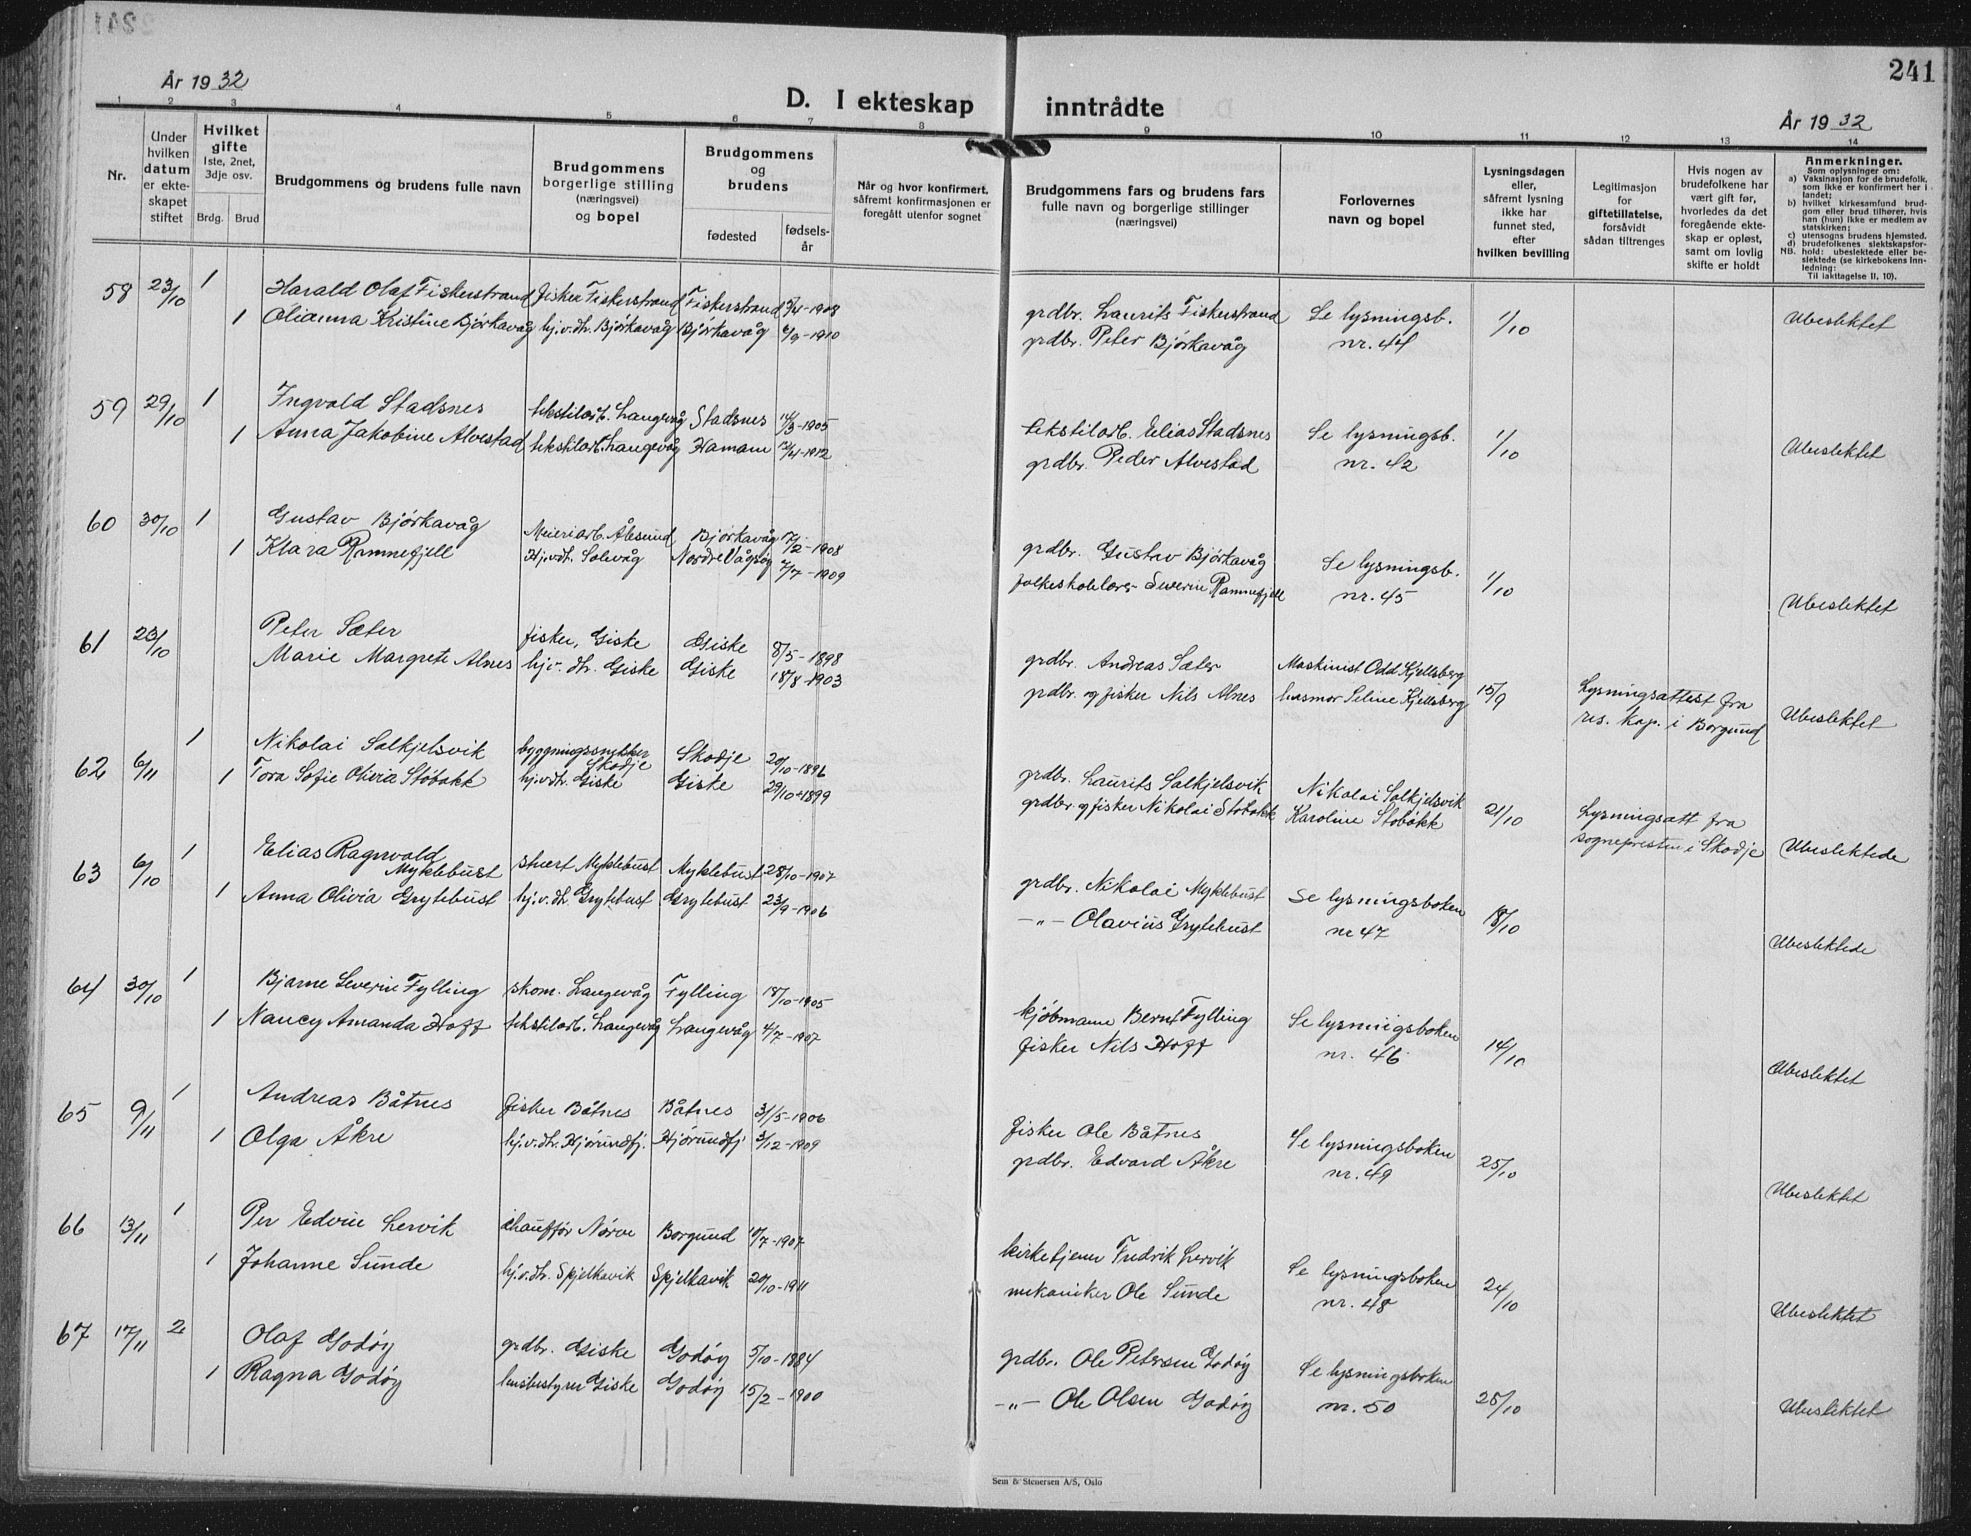 241
År 1932
D. I ekteskap inntrådte
År 1932
1 2 3 4 5 6 7 8 9 10 11 12 13 14
Nr.
Under hvilken datum er ekteskapet stiftet
Hvilket gifte
1ste, 2net, 3dje osv.
Brdg. Brud
Brudgommens og brudens fulle navn
Brudgommens borgerlige stilling (næringsvei) og bopel
Brudgommens og brudens
fødested
fødselsår
Når og hvor konfirmert, såfremt konfirmasjonen er foregått utenfor sognet
Brudgommens fars og brudens fars fulle navn og borgerlige stillinger (næringsvei)
Forlovernes navn og bopel
Lysningsdagen eller, såfremt lysning ikke har funnet sted, efter hvilken bevilling
Legitimasjon for giftetillatelse, forsåvidt sådan tiltrenges
Hvis nogen av brudefolkene har vært gift før, hvorledes da det foregående ekteskap er opløst, samt om lovlig skifte er holdt
Anmerkninger.
Som oplysninger om:
a) Vaksinasjon for de brudefolk, som ikke er konfirmert her i landet;
b) hvilket kirkesamfund brudgom eller brud tilhører, hvis han (hun) ikke er medlem av statskirken;
c) utensogns brudens hjemsted.
d) brudefolkenes slektskapsforhold: ubeslektede eller beslektede (se kirkebokens Innledning:
NB.
Til iakttagelse II, 10).
58 23/10 1 Harald Olaf Fiskerstrand fisker Fiskerstrand Fiskerstrand /4-1908 grdbr. Laurits Fiskerstrand Se lysningsb. 1/10 Ubeslektet
1 Olianna Kristine Bjørkavåg hj.v.dtr. Bjørkavåg Bjørkavåg 6/9-1910 grdbr. Peter Bjørkavåg nr. 44
59 29/10 1 Ingvald Stadsnes tekstilarb. Langevåg Stadsnes 14/3-1905 tekstilarb. Elias Stadsnes Se lysningsb. 1/10 Ubeslektet
1 Anna Jakobine Alvestad tekstilarb. Langevåg Hamam 12/4-1912 grdbr. Peder Alvestad nr. 42
60 30/10 1 Gustav Bjørkavåg Meieriarb. Ålesund Bjørkavåg 17/2-1908 grdbr. Gustav Bjørkavåg Se lysningsb. 1/10 Ubeslektet
1 Klara Ramnefjell Hj.v.dtr. Solevåg Nordre Vågsøy 7/7-1909 folkeskolelærer Severin Ramnefjell nr. 45
61 23/10 Peter Sæter fisker, Giske Giske 8/5-1898 grdbr. Andreas Sæter Maskinist Odd Kjellsberg 15/9 Lysningsattest fra Ubeslektet
Marie Margrete Alnes hj.v. dtr. Giske Giske 18/8-1903 grdbr. og fisker Nils Alnes husmor Seline Kjellsberg res. kap. i Borgund
62 6/11 1 Nikolai Solkjelsvik byggningssnekker Skodje Skodje 20/10-1896 grdbr. Laurits Solkjelsvik Nikolai Solkjelsvik 21/10 Lysningsatt fra Ubeslektede
1 Tora Sofie Olivia Støbakk hj.v.dtr. Giske Giske 29/10-1899 grdbr. og fisker Nikolai Støbakk Karoline Støbakk sognepresten i Skodje
63 6/10 1 Elias Ragnvald Myklebust stuert Myklebust Myklebust 28/10-1907 grdbr. Nikolai Myklebust Se lysningsboken 18/10 Ubeslektede
1 Anna Olivia Grytebust hj.v.dtr. Grytebust Grytebust 23/9-1906 -"- Olavius Grytebust nr 47
64 30/10 1 Bjarne Severin Fylling skom. Langevåg Fylling 18/10-1905 kjøbmann Bernt Fylling Se lysningsboken 14/10 Ubeslektet
1 Nancy Amanda Hoff tekstilarb. Langevåg Langevåg 4/7-1907 fisker Nils Hoff nr. 46
65 9/11 1 Andreas Båtnes fisker Båtnes Båtnes 31/5-1906 fisker Ole Båtnes Se lysningsboken 25/10 Ubeslektet
1 Olga Åkre hj.v.dtr. Hjørundfj. Hjørundfj 3/12-1909 grdbr. Edvard Åkre nr. 49
66 13/11 1 Per Edvin Lervik chauffør Nørve Borgund 10/7-1907 kirketjener Fredrik Lervik Se lysningsboken 24/10 Ubeslektet
1 Johanne Sunde hj.v.dtr. Spjelkavik Spjelkavik 20/10-1911 mekaniker Ole Sunde nr. 48
67 17/11 2 Olaf Godøy grdbr. Giske Godøy 5/10-1884 grdbr. Ole Petersen Godøy Se lysningsboken 25/10 Ubeslektet
1 Ragna Godøy husbestyrer Giske Godøy 15/2-1900 -"- Ole Olsen Godøy nr. 50
Sem & Stenersen A/S, Oslo